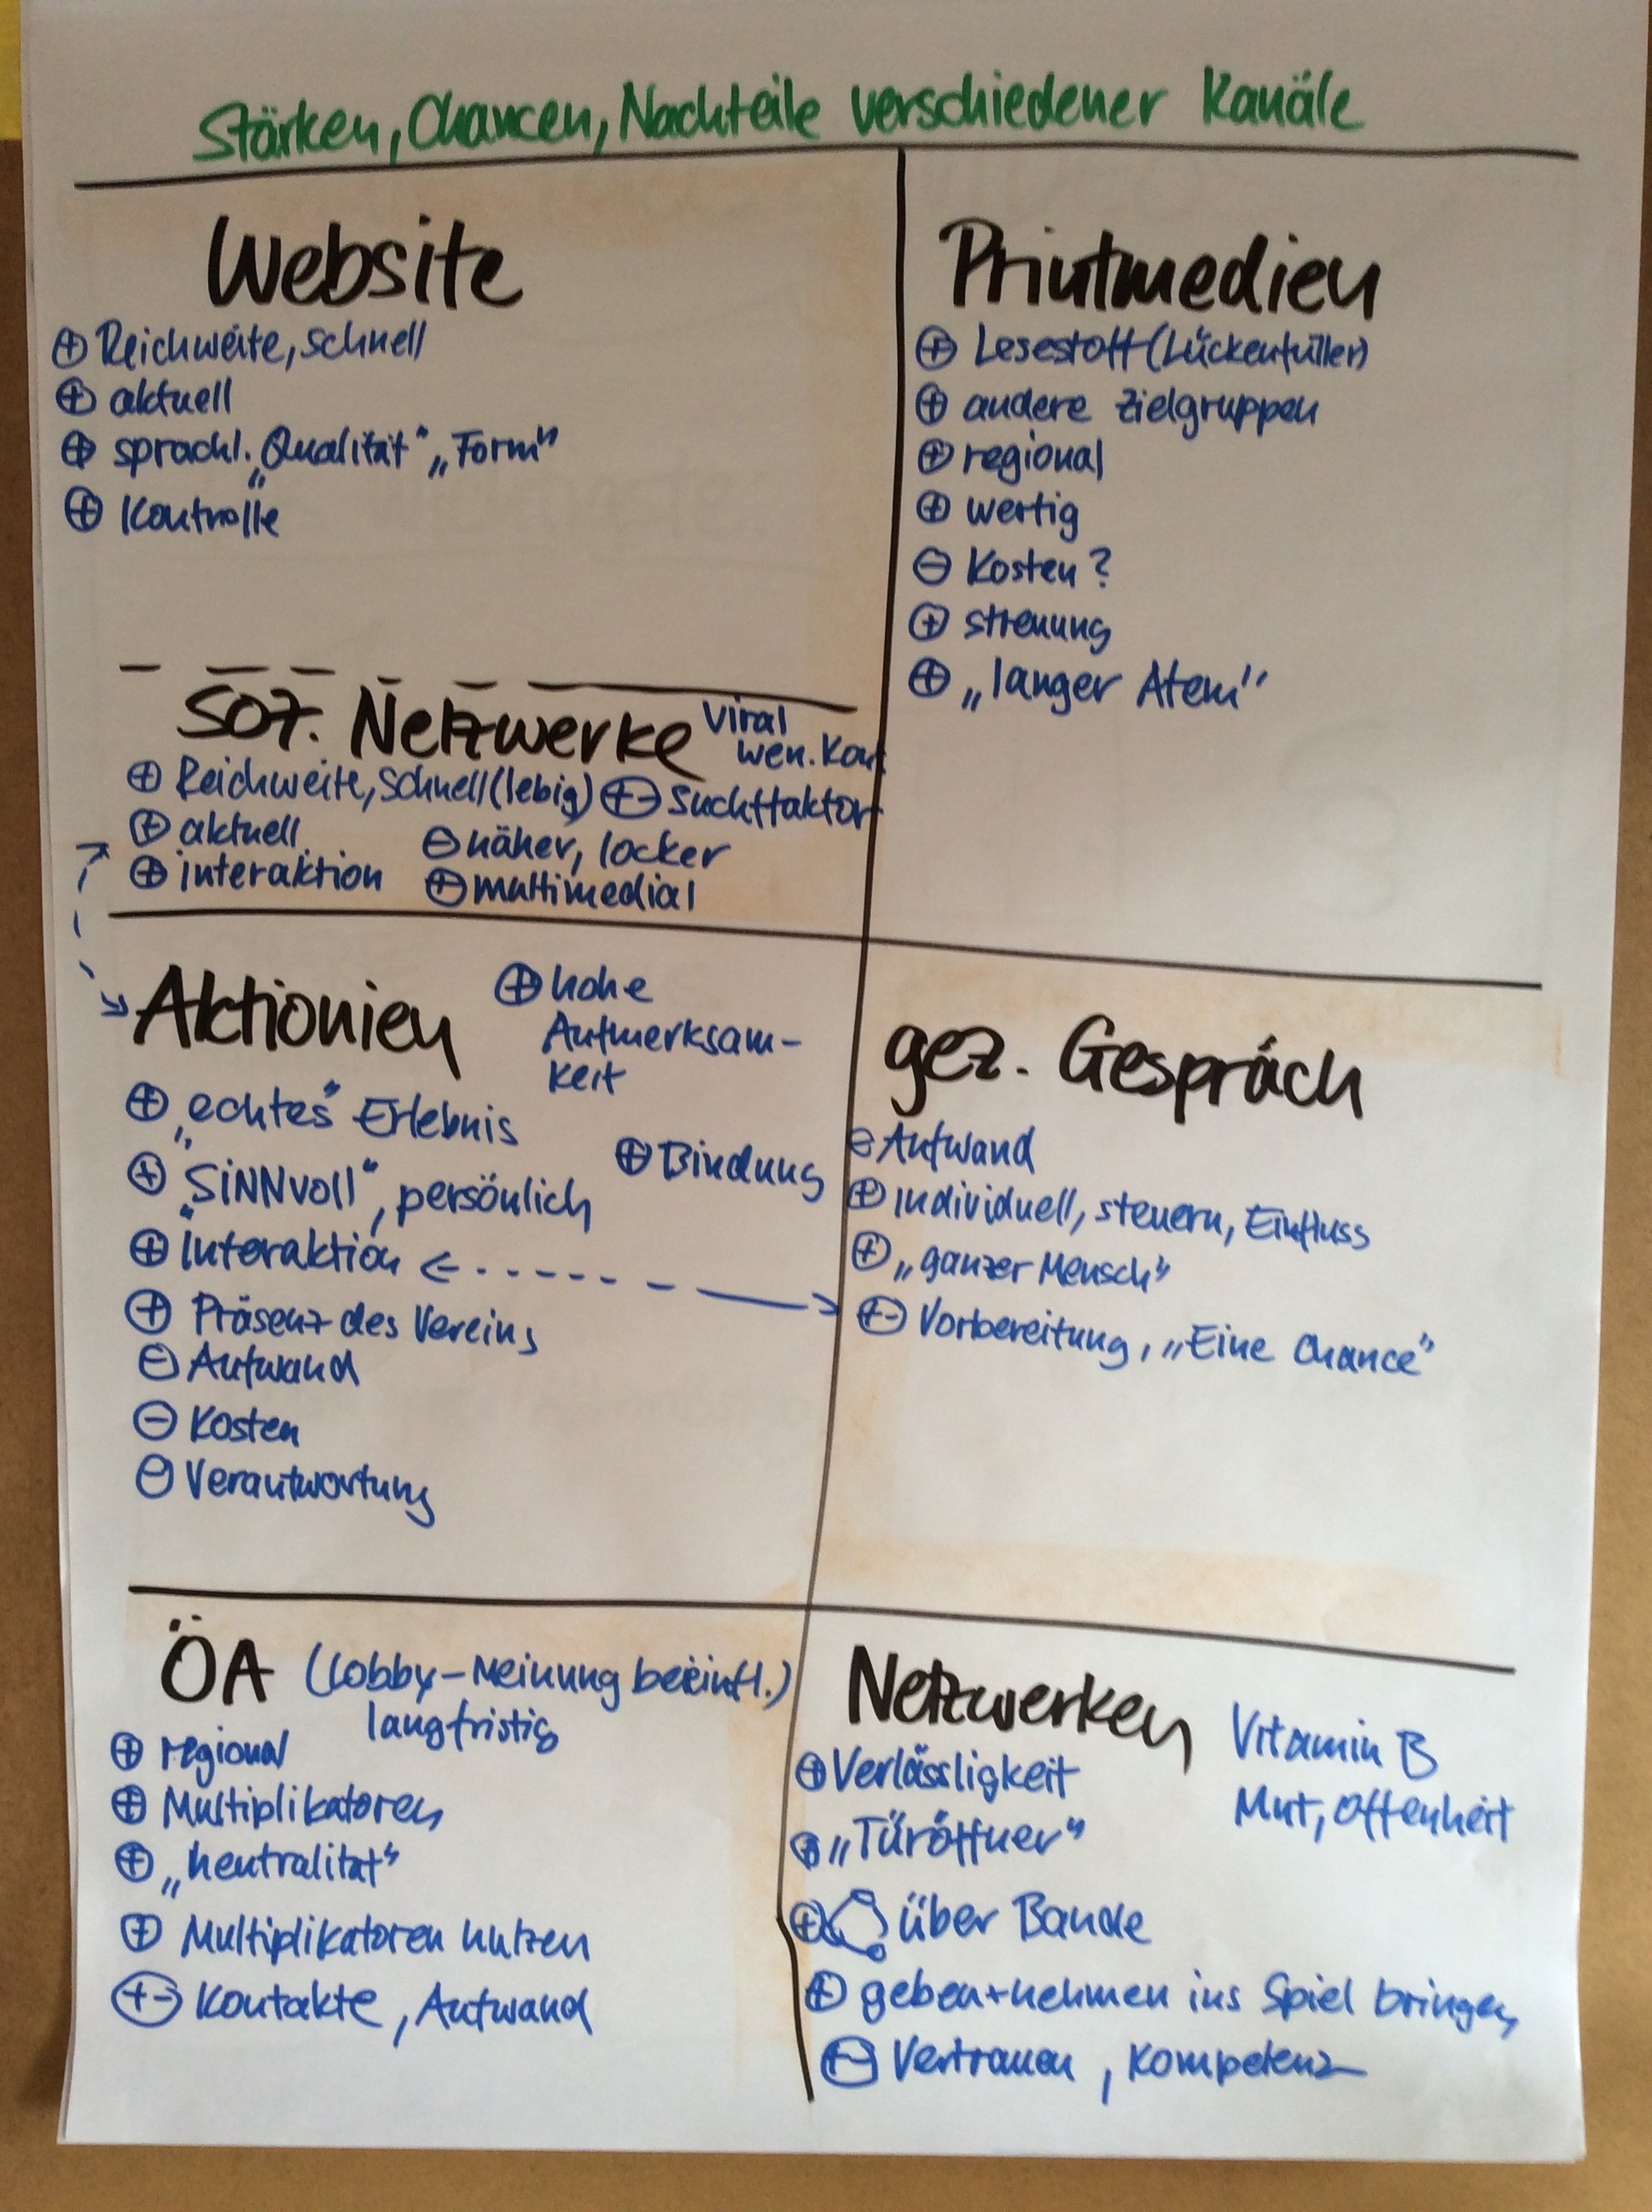 Stärken, Chancen, Nachteile verschiedener Kanäle
Website
⊕ Reichweite, schnell
⊕ aktuell
⊕ sprachl. „Qualität" „Form"
⊕ Kontrolle
Soz. Netzwerke
Viral
wen. Kon
⊕ Reichweite, schnell(lebig)
⊕ aktuell
⊕ interaktion
+- Suchtfaktor
⊖ näher, locker
⊕ multimedial
Printmedien
⊕ Lesestoff (Lückenfüller)
⊕ andere Zielgruppen
⊕ regional
⊕ wertig
⊖ Kosten?
⊕ streuung
⊕ „langer Atem"
Aktionien
⊕ hohe
Aufmerksam-
keit
⊕ „echtes" Erlebnis
⊕ „SiNNvoll", persönlich
⊕ Bindung
⊕ interaktion
⊕ Präsenz des Vereins
⊖ Aufwand
⊖ Kosten
⊖ Verantwortung
gez. Gespräch
⊖ Aufwand
⊕ individuell, steuern, Einfluss
⊕ „ganzer Mensch"
+- Vorbereitung, „Eine Chance"
ÖA (Lobby-Meinung beeinfl.)
langfristig
⊕ regional
⊕ Multiplikatoren
⊕ „neutralität"
⊕ Multiplikatoren nutzen
+- Kontakte, Aufwand
Netzwerken
Vitamin B
Mut, Offenheit
⊕ Verlässligkeit
⊕ „Türöffner"
⊕ über Bande
⊕ geben+nehmen ins Spiel bringen
+- Vertrauen, Kompetenz